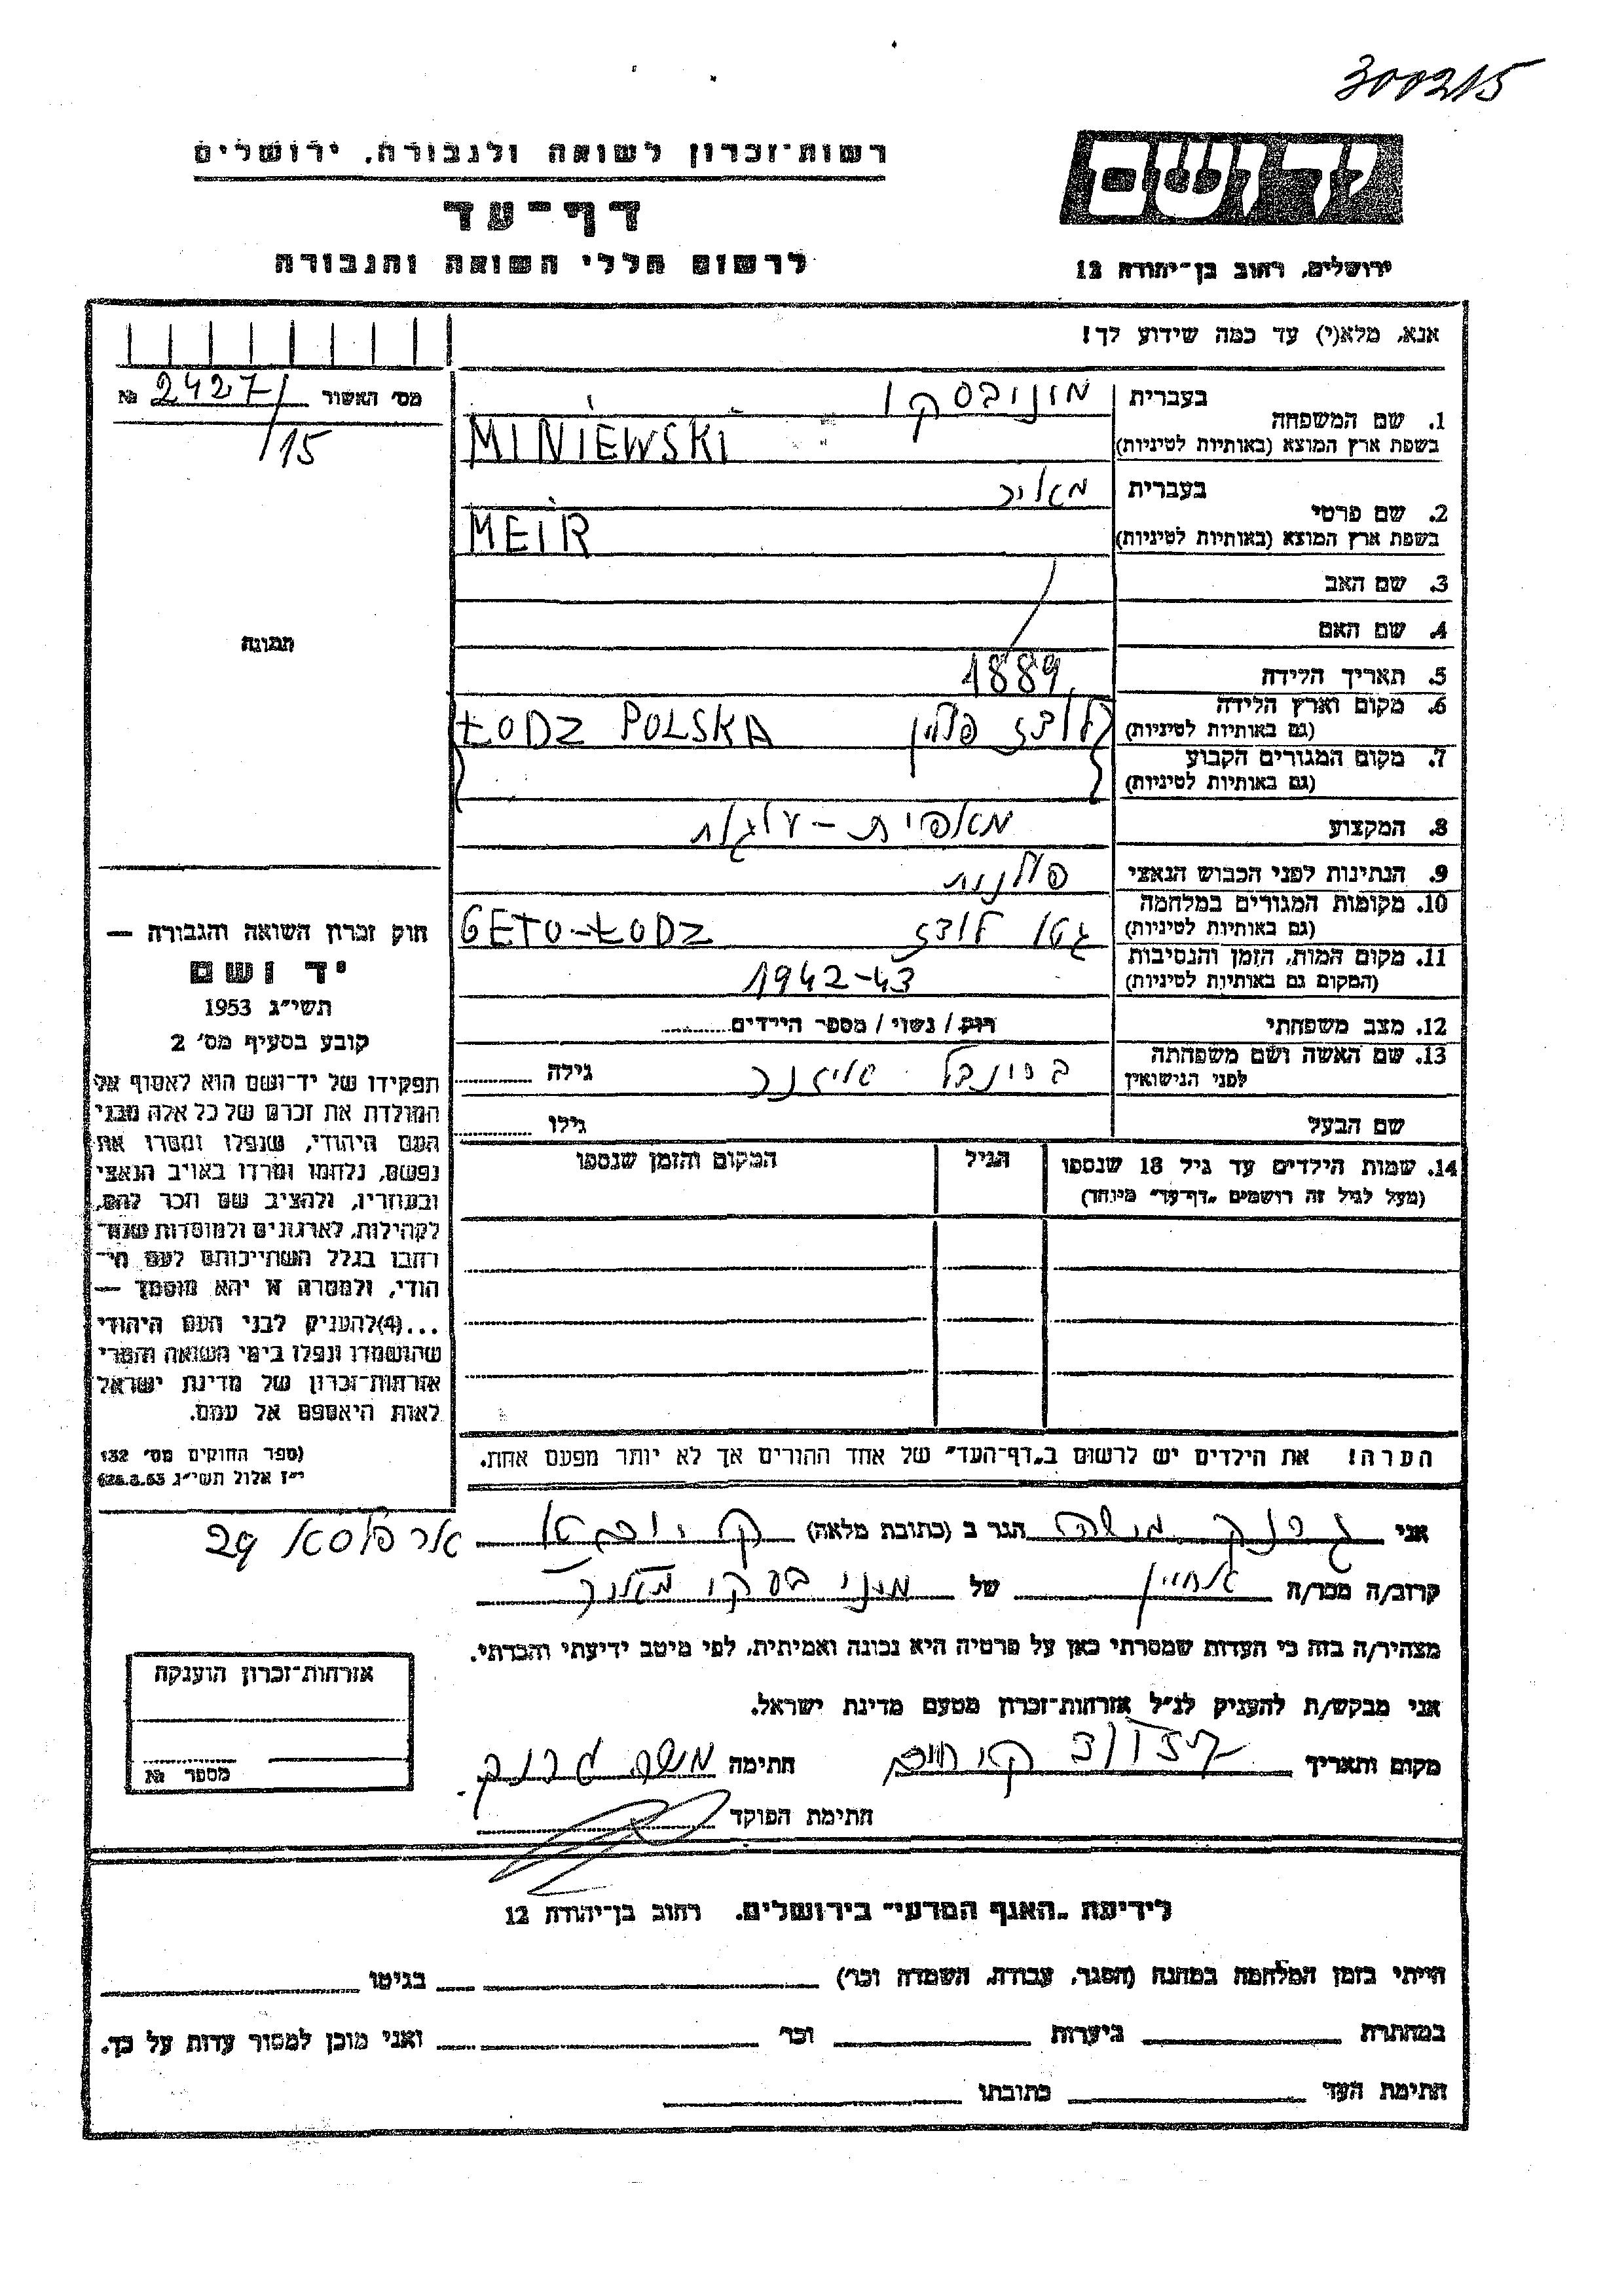 300215
רשות־זכרון לשואה ולגבורה, ירושלים
דף־עד
לרשום חללי השואה והגבורה
יד ושם
ירושלים, רחוב בן־יהודה 12
אנא, מלא(י) עד כמה שידוע לך!
מס׳ האשור 2427/15 №
תמונה
1. שם המשפחה
בעברית
בשפת ארץ המוצא (באותיות לטיניות) MINIEWSKI
2. שם פרטי
בעברית מאיר
בשפת ארץ המוצא (באותיות לטיניות) MEIR
3. שם האב
4. שם האם
5. תאריך הלידה 1889
6. מקום וארץ הלידה
(גם באותיות לטיניות) לודז פולין ŁODZ POLSKA
7. מקום המגורים הקבוע
(גם באותיות לטיניות)
8. המקצוע
9. הנתינות לפני הכבוש הנאצי פולנית
10. מקומות המגורים במלחמה
(גם באותיות לטיניות) גטו לודז GETO-ŁODZ
11. מקום המות, הזמן והנסיבות
(המקום גם באותיות לטיניות) 1942-43
12. מצב משפחתי רוק / נשוי / מספר הילדים
13. שם האשה ושם משפחתה
לפני הנישואין
גילה
שם הבעל
גילו
14. שמות הילדים עד גיל 18 שנספו
(מעל לגיל זה רושמים „דף־עד״ מיוחד)
הגיל
המקום והזמן שנספו
חוק זכרון השואה והגבורה —
יד ושם
תשי״ג 1953
קובע בסעיף מס׳ 2
תפקידו של יד־ושם הוא לאסוף אל
המולדת את זכרם של כל אלה מבני
העם היהודי, שנפלו ומסרו את
נפשם, נלחמו ומרדו באויב הנאצי
ובעוזריו, ולהציב שם וזכר להם,
לקהילות, לארגונים ולמוסדות שנח־
רבו בגלל השתייכותם לעם הי־
הודי, ולמטרה זו יהא מוסמך —
...(4)להעניק לבני העם היהודי
שהושמדו ונפלו בימי השואה והמרי
אזרחות־זכרון של מדינת ישראל
לאות היאספם אל עמם.
(ספר החוקים מס׳ 132
י״ז אלול תשי״ג 28.8.53)
הערה! את הילדים יש לרשום ב„דף־העד״ של אחד ההורים אך לא יותר מפעם אחת.
אני משה הגר ב (כתובת מלאה) 29
קרוב/ה מכר/ה אחיין של
מצהיר/ה בזה כי העדות שמסרתי כאן על פרטיה היא נכונה ואמיתית, לפי מיטב ידיעתי והכרתי.
אני מבקש/ת להעניק לנ״ל אזרחות־זכרון מטעם מדינת ישראל.
מקום ותאריך
חתימה משה
חתימת הפוקד
אזרחות־זכרון הוענקה
מספר №
לידיעת „האגף המדעי״ בירושלים. רחוב בן־יהודה 12
הייתי בזמן המלחמה במחנה (הסגר, עבודה, השמדה וכו׳) בגיטו
במחתרת ביערות וכו׳ ואני מוכן למסור עדות על כך.
חתימת העד כתובתו